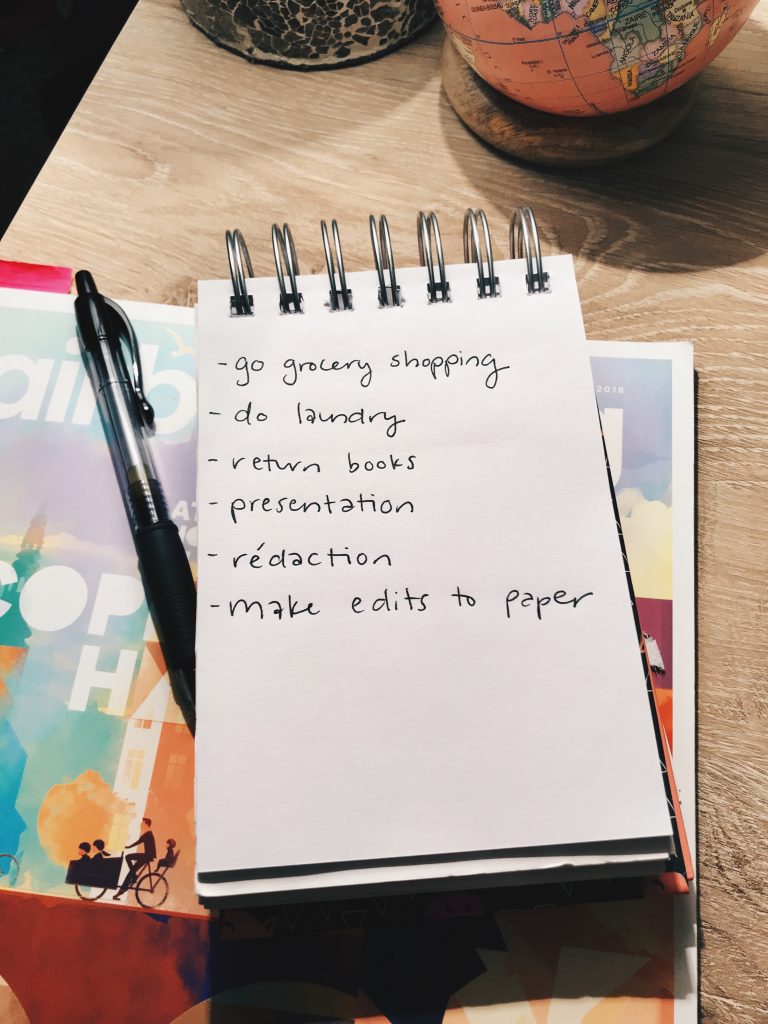 ZAIRE
TANZANIA
2018
airb
COP
H
- go grocery shopping
- do laundry
- return books
- presentation
- rédaction
- make edits to paper